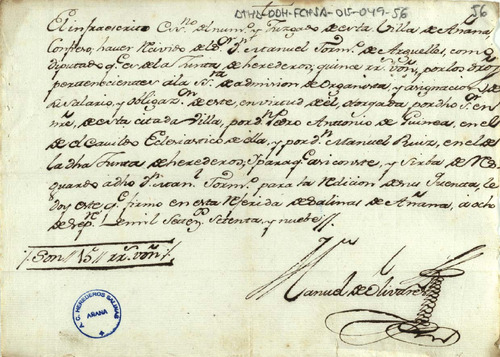 DTHA-DDH-FCHSA-015-049-56
56
El infrascrito Ess.no del num.o y Juzgado de esta Villa de Añana,
Confieso, haver recivido de D.n Manuel de Arguelles, como
Diputado de la Junta de herederos; quince rr.s von, por los dros
pertenecientes á la de admision de Organista, y asignacion
de Salario, y obligaz.n de este, en virtud de él, otorgada, por
de esta citada Villa, por d.n Pedro Antonio de Guinea, en el
de el Cavildo Eclesiastico de ella, y por d.n Manuel Ruiz, en el de
la dha Junta de herederos; y para q.e asi conste, y sirba de
guardo a dho para la Redicion de sus Quentas,
doy este q.e firmo en esta referida de Salinas de Añana, a ocho
de de mil Setez.s Setenta, y nueve
Son 15 rr.s von
Manuel de Olivares
A.C. HEREDEROS SALINAS
AÑANA